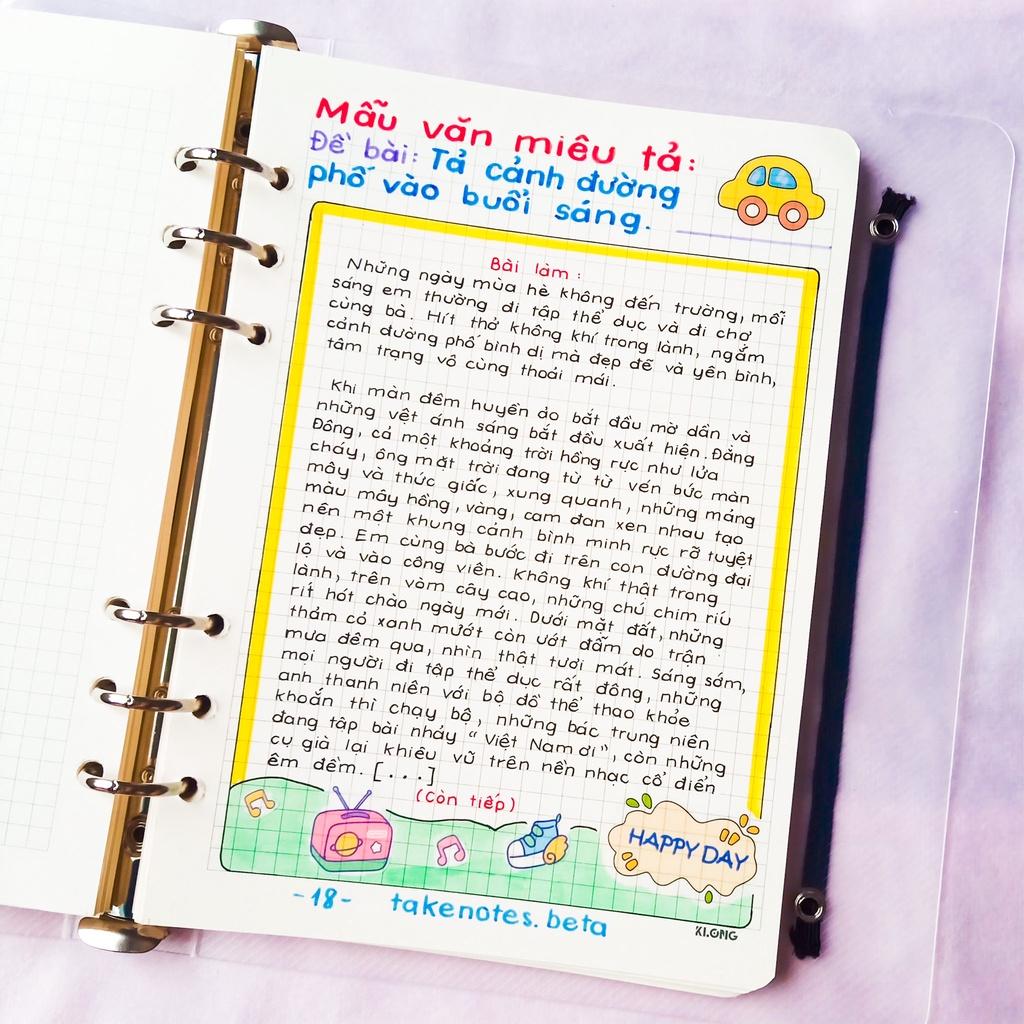 Mẫu văn miêu tả:
Đề bài: Tả cảnh đường
phố vào buổi sáng.
Bài làm:
Những ngày mùa hè không đến trường, mỗi
sáng em thường đi tập thể dục và đi chợ
cùng bà. Hít thở không khí trong lành, ngắm
cảnh đường phố bình dị mà đẹp đẽ và yên bình,
tâm trạng vô cùng thoải mái.
Khi màn đêm huyền ảo bắt đầu mờ dần và
những vệt ánh sáng bắt đầu xuất hiện. Đằng
Đông, cả một khoảng trời hồng rực như lửa
cháy, ông mặt trời đang từ từ vén bức màn
mây và thức giấc, xung quanh, những mảng
màu mây hồng, vàng, cam đan xen nhau tạo
nên một khung cảnh bình minh rực rỡ tuyệt
đẹp. Em cùng bà bước đi trên con đường đại
lộ và vào công viên. Không khí thật trong
lành, trên vòm cây cao, những chú chim ríu
rít hót chào ngày mới. Dưới mặt đất, những
thảm cỏ xanh mướt còn ướt đẫm do trận
mưa đêm qua, nhìn thật tươi mát. Sáng sớm,
mọi người đi tập thể dục rất đông, những
anh thanh niên với bộ đồ thể thao khỏe
khoắn thì chạy bộ, những bác trung niên
đang tập bài nhảy "Việt Nam ơi", còn những
cụ già lại khiêu vũ trên nền nhạc cổ điển
êm đềm. [...]
(Còn tiếp)
HAPPY DAY
-18- takenotes.beta
KLONG